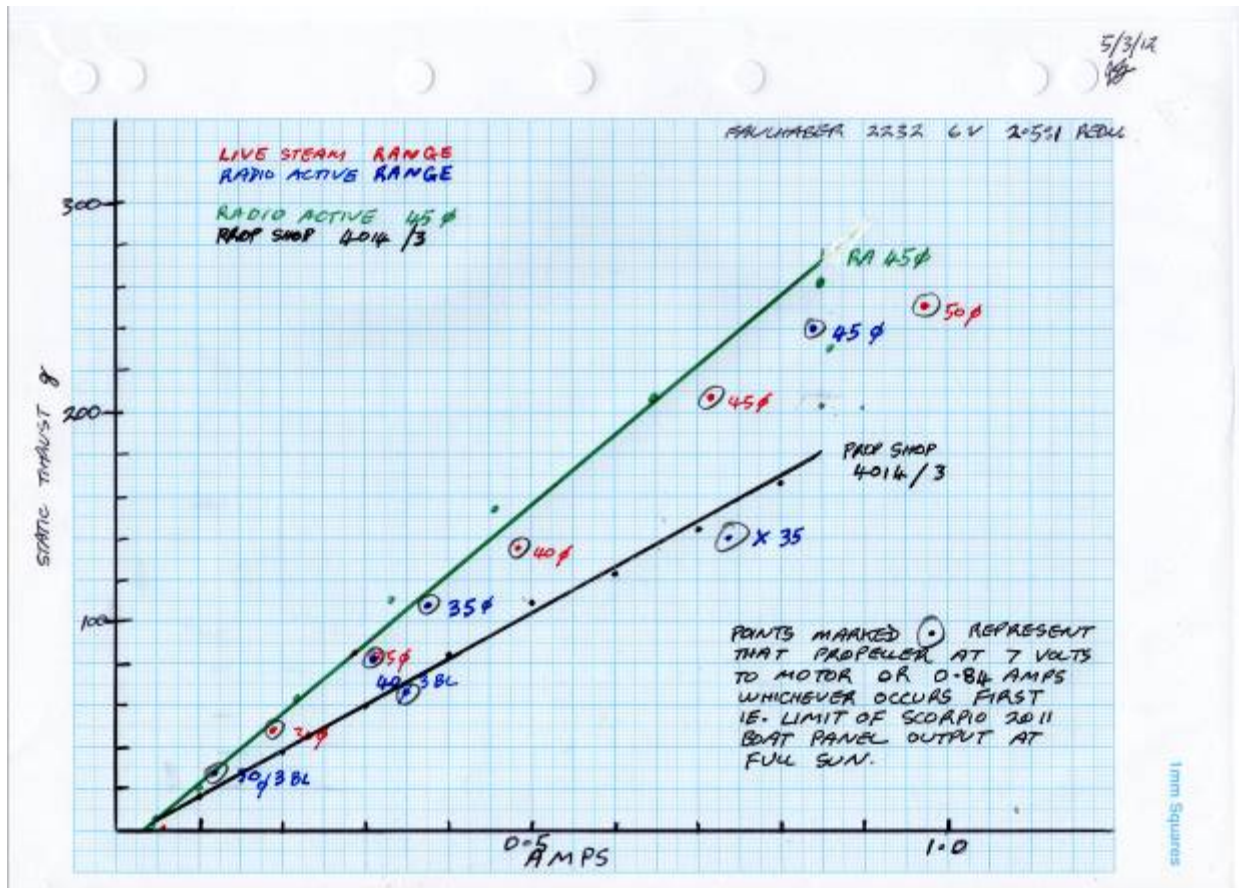 5/3/12
FAULHABER 2232 6V 2.5:1 REDU
LIVE STEAM RANGE
RADIO ACTIVE RANGE
RADIO ACTIVE 45 ϕ
PROP SHOP 4014/3
300
RA 45ϕ
50ϕ
45 ϕ
STATIC THRUST g
200
45ϕ
PROP SHOP
4014/3
40ϕ
X 35
35ϕ
100
35ϕ
40 3BL
POINTS MARKED REPRESENT
THAT PROPELLER AT 7 VOLTS
TO MOTOR OR 0.84 AMPS
WHICHEVER OCCURS FIRST
IE. LIMIT OF SCORPIO 2011
BOAT PANEL OUTPUT AT
FULL SUN.
30/3BL
0.5
1.0
AMPS
1mm Squares